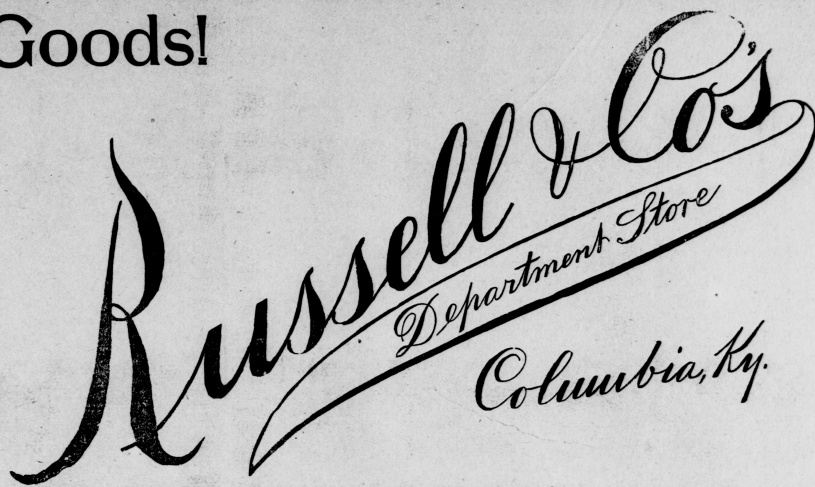 Goods!
Russell & Co's
Department Store
Columbia, Ky.